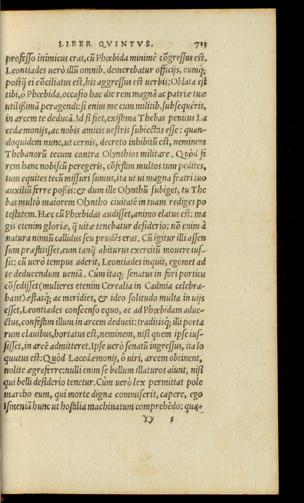 LIBER QVINTVS. 713
professo inimicus erat, cū Phœbida minimè cōgressus est.
Leontiades uerò illū omnib. demerebatur officijs, eumq́;
postq̃ ei cōciliatus est, his aggressus est uerbis: Oblata est
tibi, ô Phœbida, occasio hac die rem magnā ac patriæ tuæ
utilißimā peragendi: si enim me cum militib. subsequéris,
in arcem te deducā. Id si fiet, existima Thebas penius La
cedæmonijs, ac nobis amicis uestris subiectas esse: quan-
doquidem nunc, ut cernis, decreto inhibitū est, neminem
Thebanorū tecum contra Olynthios militare. Quòd si
rem hanc nobiscū peregeris, cōfestim multos tum pedites,
tum equites tecū missuri sumus, ita ut ui magna fratri tuo
auxiliū ferre poßis: & dum ille Olynthū subiget, tu The
bas multò maiorem Olyntho ciuitatē in tuam rediges po
testatem. Hæc cū Phœbidas audisset, animo elatus est: ma
gis etenim gloriæ, q̃ uitæ tenebatur desiderio: nō enim à
natura nimiū callidus seu prudēs erat. Cū igitur illi assen
sum præstitisset, eum tanq̃ abiturus exercitū mouere ius-
sit: cū uerò tempus aderit, Leontiades inquit, ego met ad
te deducendum ueniā. Cùm itaq; senatus in fori porticu
cōsedisset (mulieres etenim Cerealia in Cadmia celebra-
bant) æstasq́; ac meridies, & ideo solitudo multa in uijs
esset, Leontiades conscenso equo, ac ad Phœbidam adue-
ctus, confestim illum in arcem deducit: traditisq́; illi porta
rum clauibus, hortatus est, neminem, nisi quem ipse ius-
sisset, in arcē admitteret. Ipse uerò senatū ingressus, ita lo
quutus est: Quòd Lacedæmonij, ô uiri, arcem obtinent,
nolite ægre ferre: nulli enim se bellum illaturos aiunt, nisi
qui belli desiderio tenetur. Cùm uerò lex permittat pole
marcho eum, qui morte digna commiserit, capere, ego
Ismeniā hunc ut hostilia machinatum comprehēdo: qua-
YY 5